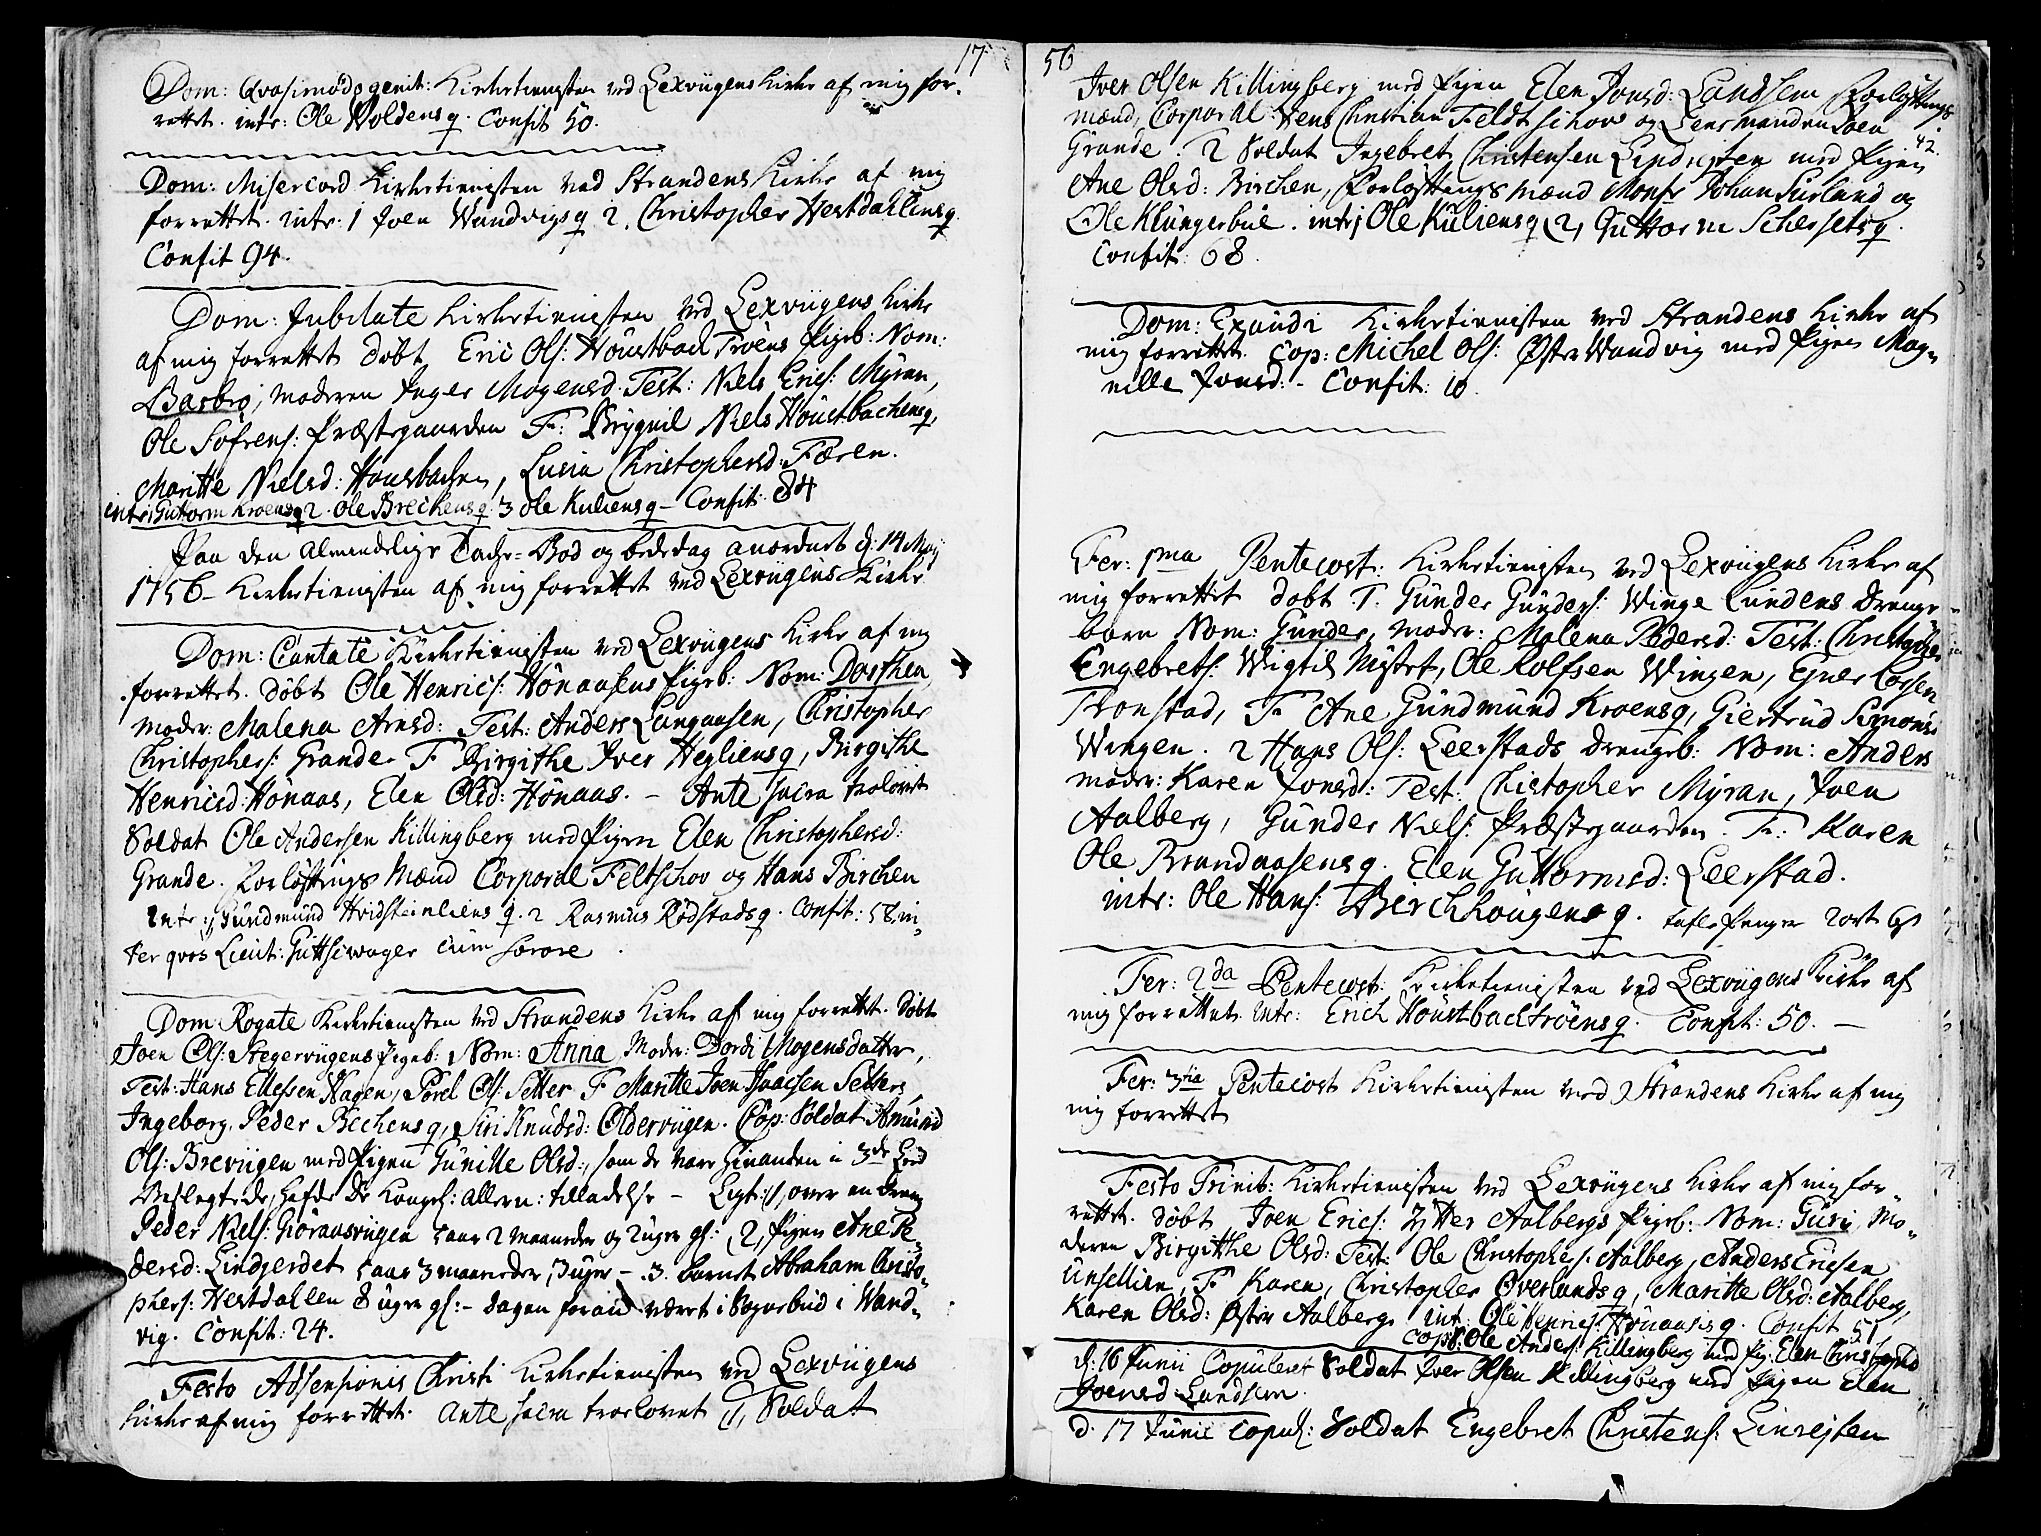 17
Dom: Qvasimodogenit: Kirketienesten ved Lexviigens Kirke af mig for-
rettet. intr: Ole Woldens q. Confit 50.
Dom: Misericord Kirketienesten ved Strandens Kirke af mig
forrettet. intr. 1 Joen Wandvigs q 2, Christopher Westdahlens q.
Confit 94.
Dom: Jubilate Kirketienesten ved Lexviigens Kirke
af mig forrettet døbt Eric Ols: Houstbach Trøens Pigeb: Nom:
Barbro, Moderen Inger Mogensd. Test: Niels Erics: Myran,
Ole Sofrens: Præstegaarden F: Brygnil Niels Houstbachens q,
Maritte Nielsd: Housbachen, Lusia Christophersd: Færen.
intr: 1 Guttorm Kroens q 2. Ole Brechens q. 3 Ole Kuliens q – Confit: 84
Paa den almindelige Tache-Bod og bededag anordnet d: 14 Maij
1756 – Kirketienisten af mig forrettet ved Lexviigens Kirke
Dom: Cantate Kirketienisten ved Lexviigens Kirke af mig
forrettet. døbt Ole Henrics: Hönaasens Pigeb: Nom: Dorthen,
Moder: Malena Arnsd: Test: Anders Langaasen, Christopher
Christophers: Grande F Birgithe Iver Hegliens q, Birgithe
Henricsd: Hönaas, Elen Olsd: Hönaas. – Ante sacra trolovet
Soldat Ole Andersen Killingberg med Pigen Elen Christophersd:
Grande. Forlöftnings Mænd Corporal Feltschov og Hans Birchen
Intr: 1, Gundmund Hvidsteinliens q. 2 Rasmus Rødstads q. Confit: 58 in-
ter qvos Lieut: Guttsewager cum sorore
Dom Rogate Kirketienesten ved Strandens Kirke af mig forrettet. døbt
Joen Ols: Stegerviigens Pigeb: Nom: Anna Moder: Dordi Mogensdatter,
Test: Hans Ellefsen Hagen, Porel Ols: Setter F Maritte Joen Isacsen Setters,
Ingeborg Peder Bechens q, Siri Knudsd: Olderviigen. Cop: Soldat Amund
Ols: Breviigen med Pigen Gunille Olsd:, som de vare hinanden i 3de Leed
Beslegtede, hafde de Kongel: allern: tilladelse – Ligt: 1, over en dreng
Peder Niels: Giöraasviigen 5 aar 2 maaneder og 2 uger gl: 2, Pigen Ane Pe-
dersd: Lindgerdet 5 aar 3 maaneder, 3 uger – 3. barnet Abraham Christo-
phers: Westdahlen 8 uger gl: – dagen forud været i Sognebud i Wand-
vig. Confit: 24.
Festo Adsensionis Christi Kirketienisten ved Lexviigens
Kirke af mig forrettet. Ante sacra troelovet 1, Soldat
56
Iver Olsen Killingberg med Pigen Elen Jonsd: Landsem Forløftnings
mænd, Corporal Jens Christian Feldtschov og Lensmanden Joen
42.
Grande. 2 Soldat Ingebret Christensen Lindrejten med Pigen
Ane Olsd: Birchen, Forløftnings mænd Monsr Johan Surland og
Ole Klungerbue. intr 1 Ole Kuliens q 2, Guttorm Schersets q.
Confit: 68.
Dom: Exaudi Kirketienesten ved Strandens Kirke af
mig forrettet. Cop: Michel Ols: Øster Wandvig med Pigen Mag-
nille Jonsd: – Confit: 10.
Fer: 1ma Pentecost: Kirketienisten ved Lexviigens Kirke af
mig forrettet døbt 1. Gunder Gunders: Winge Lundens Drenge
barn Nom: Gunder, Moder: Malena Pedersd: Test: Christopher
Engebrets: Wigtil Mystet, Ole Rolfsen Wingen, Ejner Larsen
Tronstad, F Ane Gundmund Kroens q, Giertrud Simonsd
Wingen. 2 Hans Ols: Leerstads Drengeb: Nom: Anders
moder: Karen Jonsd: Test: Christopher Myran, Joen
Aalberg, Gunder Niels: Præstegaarden. F: Karen
Ole Brandaasens q. Elen Guttormsd: Leerstad.
intr: Ole Hans: Birchhougens q. tafle penger 2 ort 6 s
Fer: 2da Pentecost: Kirketienisten ved Lexviigens Kirke af
mig forrettet. Intr: Erich Houstbachtröens q. Confit: 50. –
Fer: 3tia Pentecost Kirketienisten ved Strandens Kirke af mig
mig forrettet
Festo Trinit: Kirketienisten ved Lexviigens Kirke af mig for-
rettet. døbt Joen Erics: Ytter Aalbergs Pigeb: Nom: Guri, Mo-
deren Birgitthe Olsd: Test: Ole Christophers: Aalberg, Anders Ericsen
Unsellien, F Karen, Christopher Overlands q, Maritte Olsd: Aalberg,
Karen Olsd: Øster Aalberg. int: Ole Henrics: Hönaasis q. Confit 51
Copt: Ole Anders: Killingberg med Pig. Elen Christophersd
d: 16 Junii Copuleret Soldat Iver Olsen Killingberg med Pigen Elen
Joensd Landsem.
d: 17 Junii Copul: Soldat Engebret Christens: Linrejten